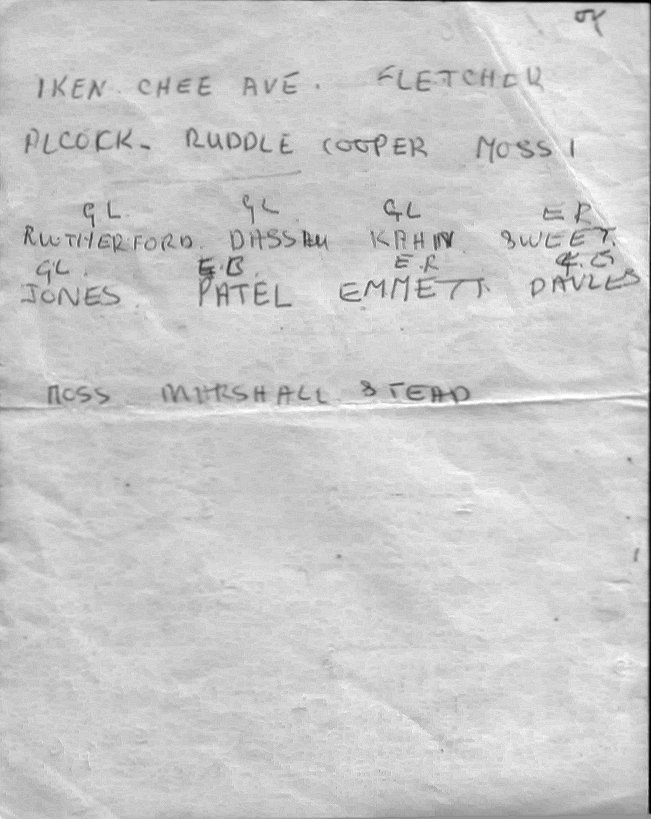 IKEN CHEE AVE. FLETCHER
ALCOCK. RUDDLE COOPER MOSS 1
GL. GL GL E R
RUTHERFORD. DASSAU KAHN SWEET.
GL. E.B. E.R E.G
JONES. PATEL EMMETT. DAVIES
MOSS MARSHALL STEAD